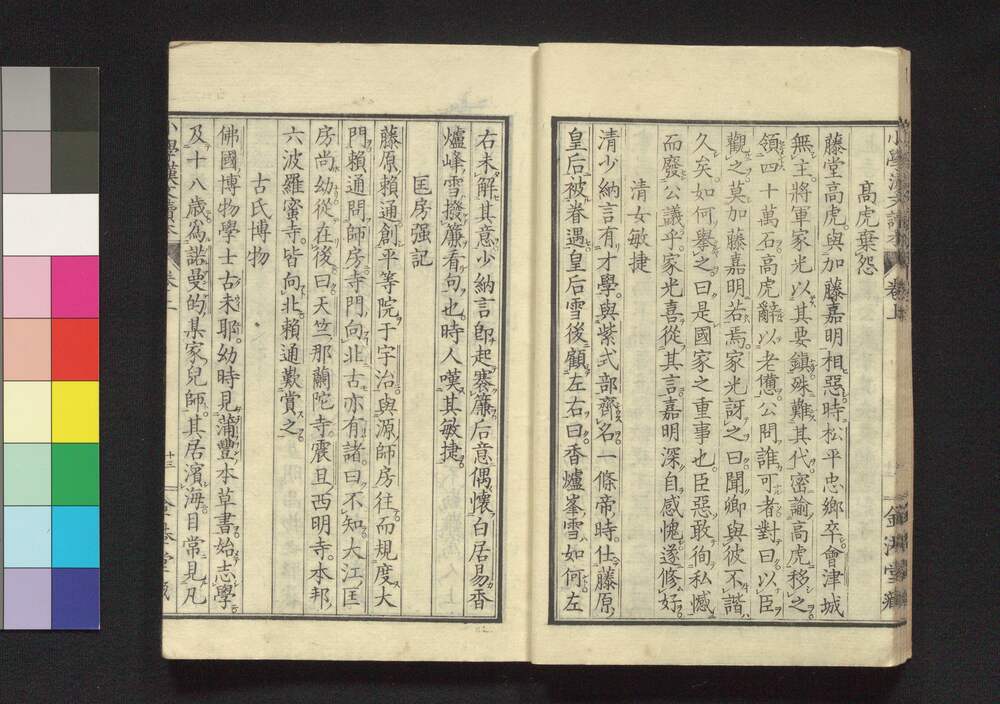 高虎棄怨
藤堂高虎與加藤嘉明相惡時松平忠鄉卒會津城
無主將軍家光以其要鎮殊難其代密諭高虎移之
領四十萬石高虎辭以老憊公問誰可者對曰以臣
觀之莫加藤嘉明若焉家光訝之曰聞卿與彼不諧
久矣如何擧之曰是國家之重事也臣惡敢徇私憾
而廢公議乎家光喜從其言嘉明深自感愧遂修好
清女敏捷
清少納言有才學與紫式部齊名一條帝時仕藤原
皇后被眷遇皇后雪後顧左右曰香爐峯雪如何左
右未解其意少納言卽起搴簾后意偶懷白居易香
爐峰雪撥簾看句也時人嘆其敏捷
匡房强記
藤原賴通創平等院于宇治與源師房往而規度大
門賴通問師房寺門向北古亦有諸曰不知大江匡
房尚幼從在後曰天竺那蘭陀寺震旦西明寺本邦
六波羅蜜寺皆向北賴通歎賞之
古氏博物
佛國博物學士古未耶幼時見蒲豐本草書始志學
及十八歲爲諾曼的某家兒師其居濱海目常見凡
小學漢文讀本
卷上
十三